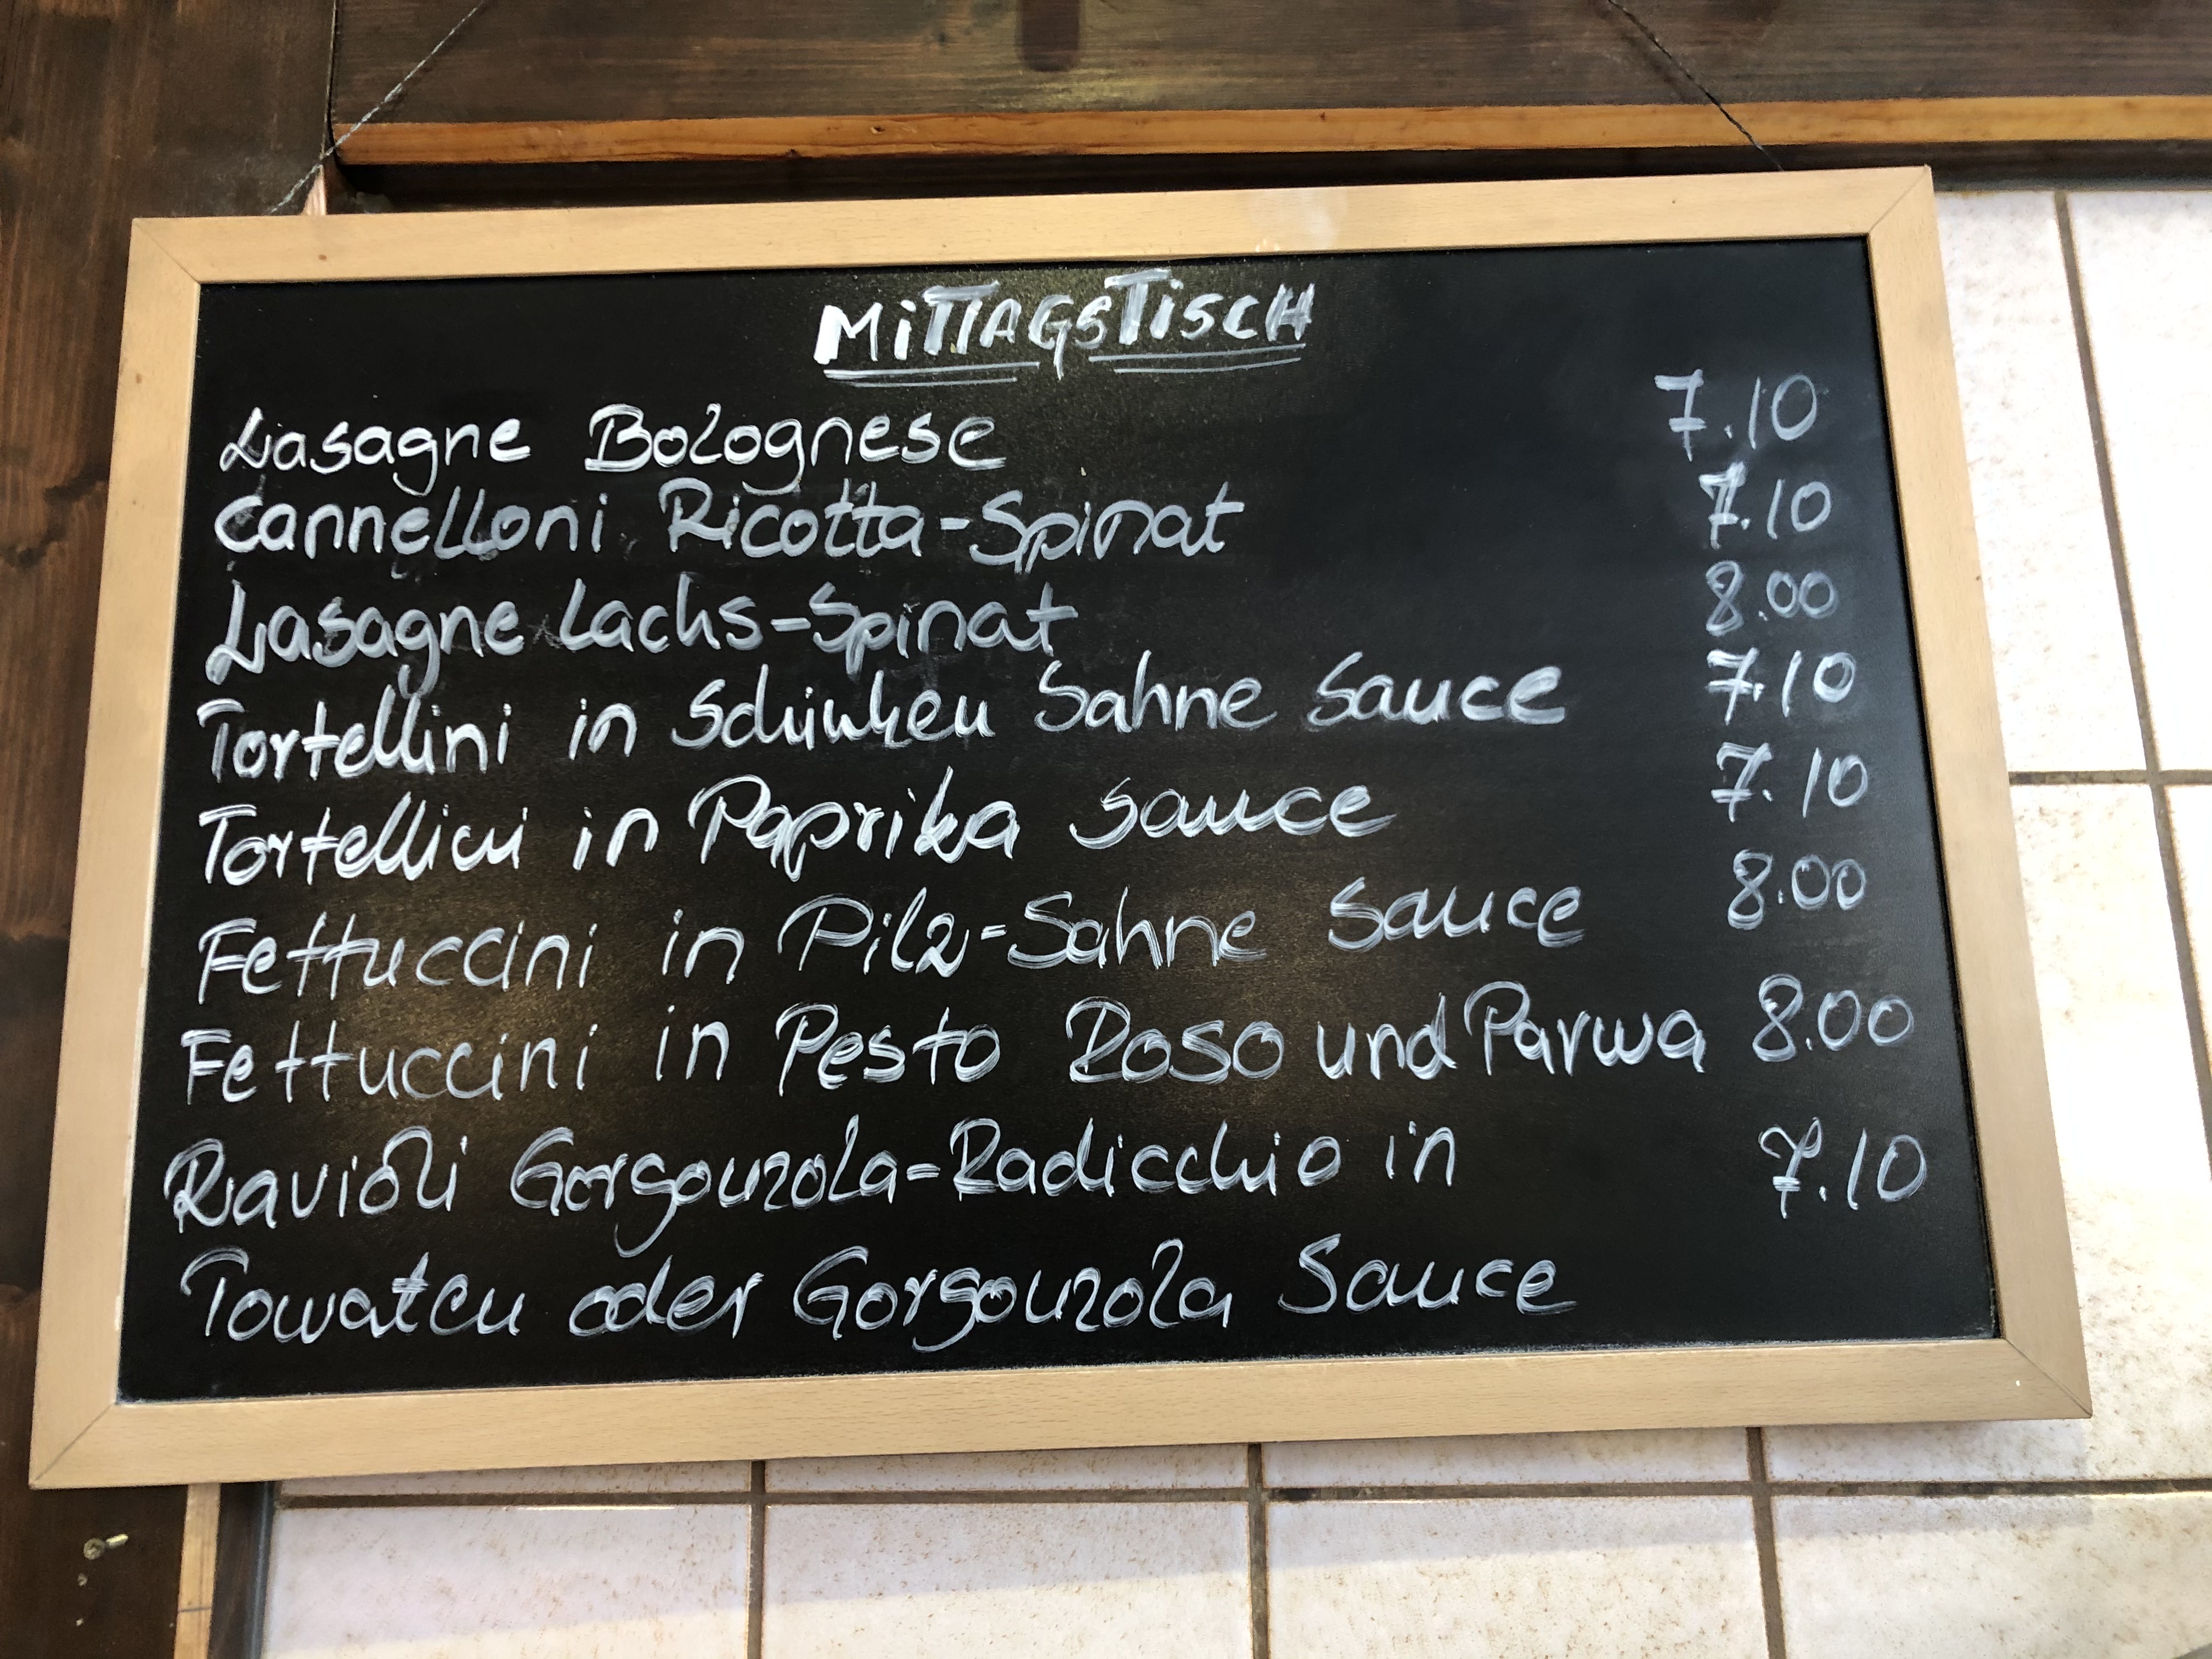 MiTTAGSTiSCH
Lasagne Bolognese 7.10
Cannelloni Ricotta-Spinat 7.10
Lasagne Lachs-Spinat 8.00
Tortellini in Schinken Sahne Sauce 7.10
Tortellini in Paprika Sauce 7.10
Fettuccini in Pilz-Sahne Sauce 8.00
Fettuccini in Pesto Roso und Parma 8.00
Ravioli Gorgonzola-Radicchio in 7.10
Tomaten oder Gorgonzola Sauce